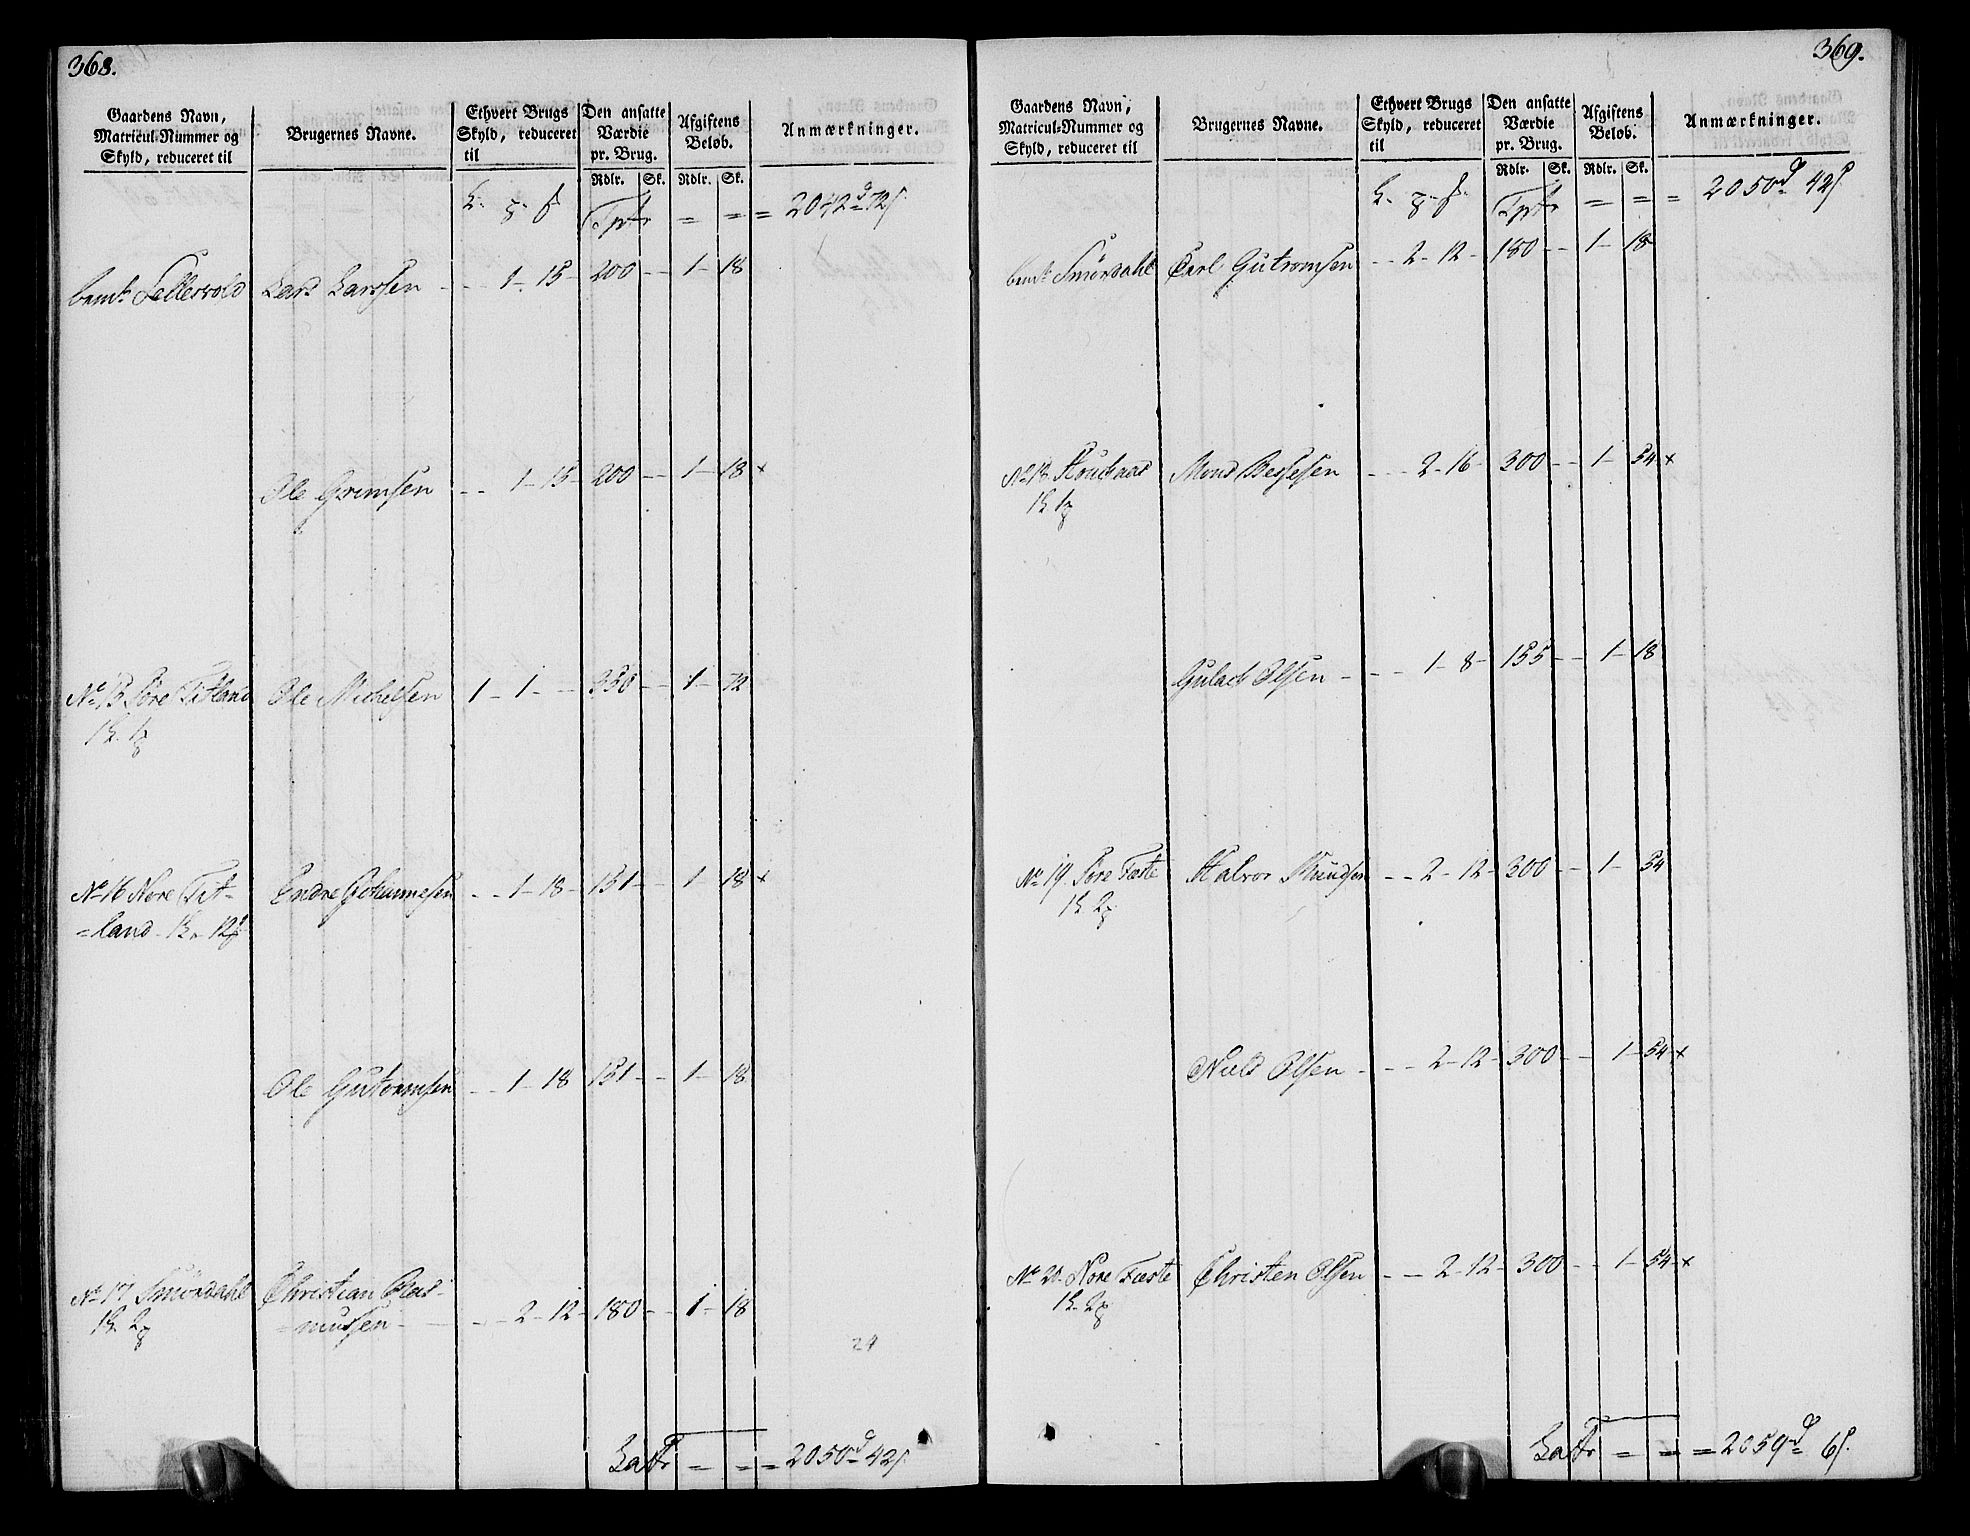 368.
Gaardens Navn, Matricul-Nummer og Skyld, reduceret til
Brugernes Navne.
Ethvert Brugs Skyld, reduceret til
Den ansatte Værdie pr. Brug.
Afgiftens Beløb.
Anmærkninger.
Rdlr. Sk. Rdlr. Sk.
Tptr = = = 2042 d 72 s
bemte Tellevold Lars Larssen - - 1 - 15 - 200 - - 1 - 18
Ole Grimsen - - 1 - 15 - 200 - - 1 - 18 x
No 15 Søre Titland Ole Michelsen 1 - 1 - - 350 - - 1 - 72
No 16 Nore Tit- Endre Johannesen - - 1 - 18 - 151 - - 1 - 18 x
=land
Ole Guttormsen - - 1 - 18 151 - - 1 - 18
No 17 Smørdahl Christian Ras-
=mussen - - 2 - 12 - 180 - - 1 - 18
24
Latr = = = 2050 d 42 s
369.
Gaardens Navn, Matricul-Nummer og Skyld, reduceret til
Brugernes Navne.
Ethvert Brugs Skyld, reduceret til
Den ansatte Værdie pr. Brug.
Afgiftens Beløb.
Anmærkninger.
Rdlr. Sk. Rdlr. Sk.
Tptr = = = 2050 d 42 s
bemte Smørdahl Carl Gutromsen - - 2 - 12 - 180 - - 1 - 18
No 18 Mons - - - 2 - 16 - 300 - - 1 - 54 x
Gulach Olsen - - - 1 - 8 - 155 - - 1 - 18
No 19. Søre Tæste Halvor Knudsen - - 2 - 12 - 300 - - 1 - 54
Niels Olsen - - - 2 - 12 - 300 - - 1 - 54 x
No 20. Nore Tæste Christen Olsen - - 2 - 12 - 300 - - 1 - 54 x
Latr = = = 2059 d 6 s